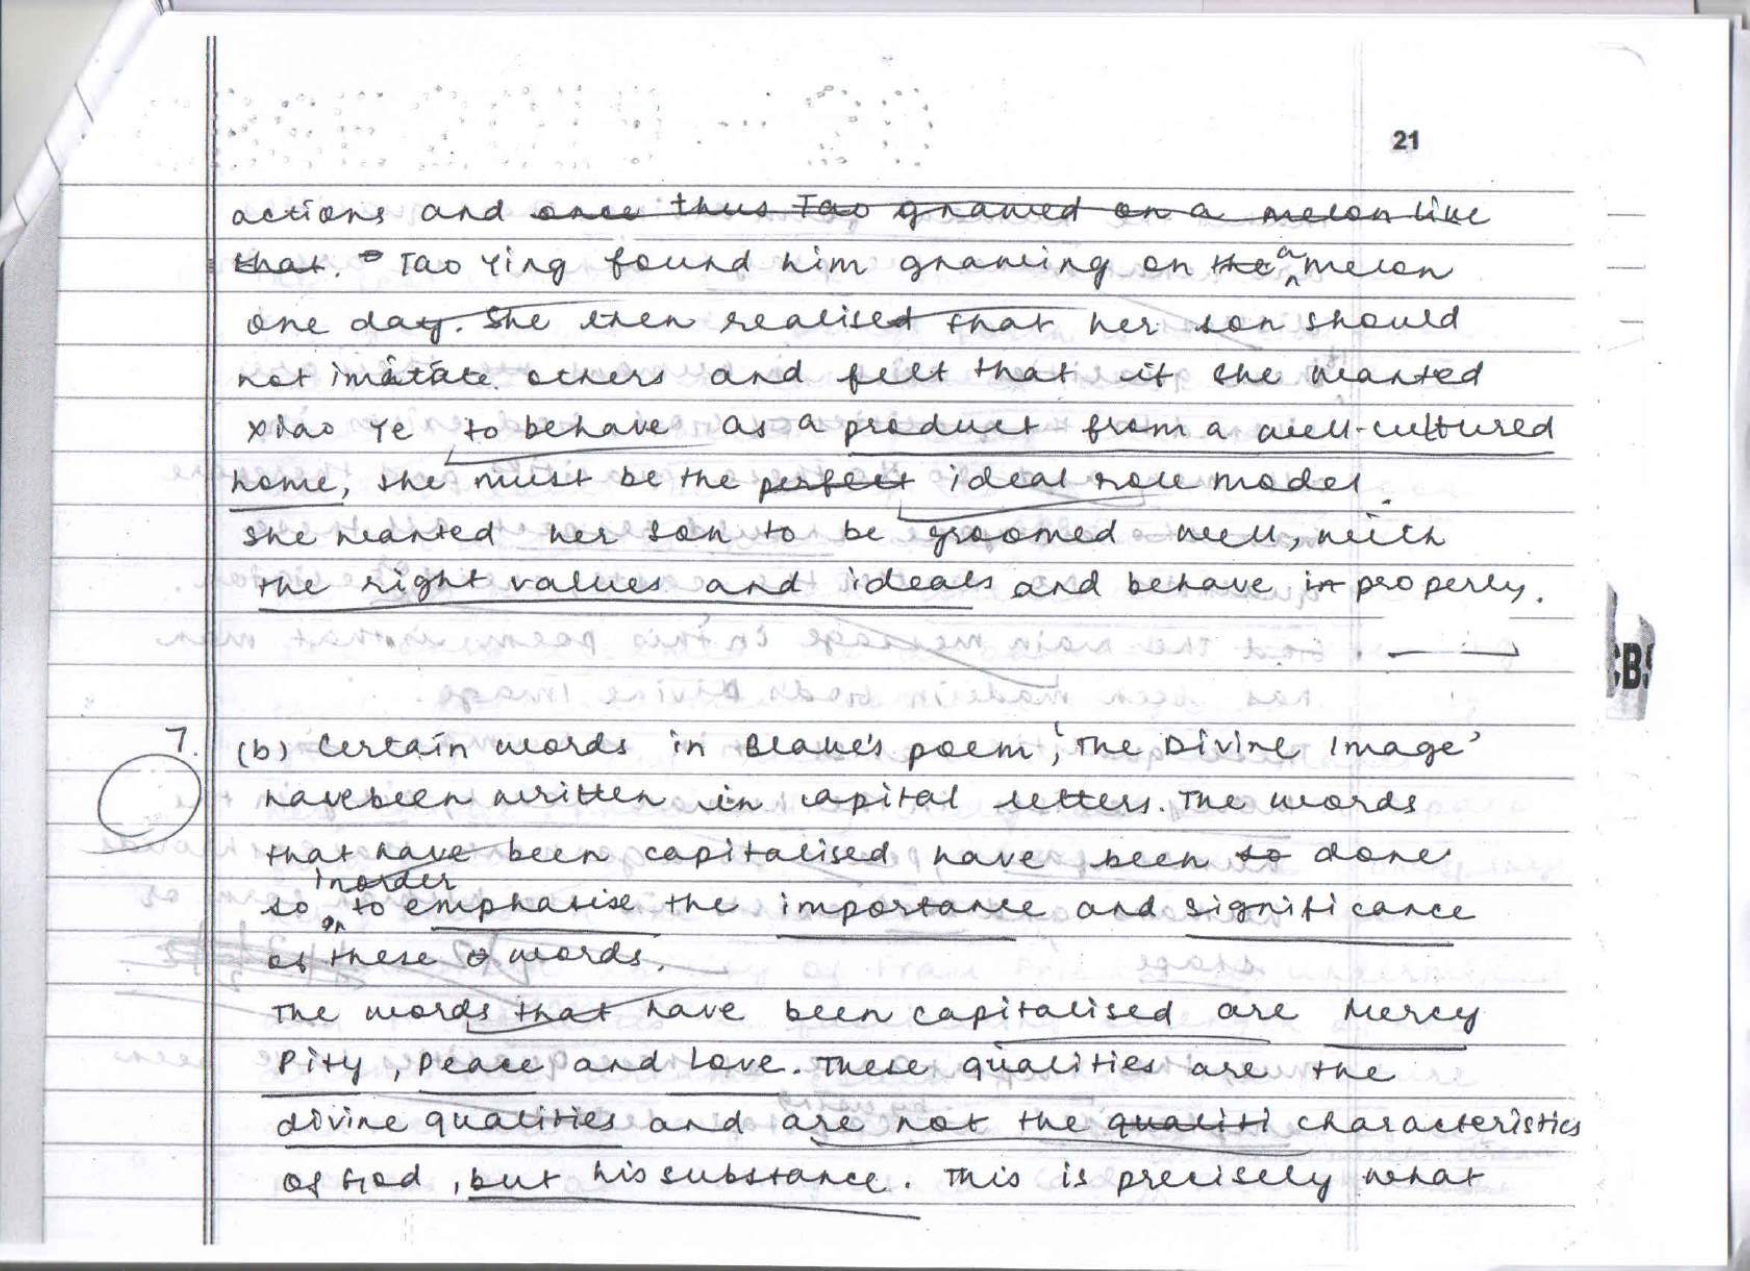 21
actions and once thus Tao gnawed on a melon like
that. Tao Ying found him gnawing on the a melon
one day. She then realised that her son should
not imitate others and felt that if she wanted
Xiao Ye to behave as a product from a well-cultured
home, she must be the perfect ideal role model.
She wanted her son to be groomed well, with
the right values and ideals and behave in properly.
7. (b) Certain words in Blake's poem, 'The Divine Image'
have been written in capital letters. The words
that have been capitalised have been so done
in order
so as to emphasise the importance and significance
of these words.
The words that have been capitalised are Mercy
Pity, Peace and Love. These qualities are the
divine qualities and are not the qualiti characteristics
of God, but his substance. This is precisely what
CBS